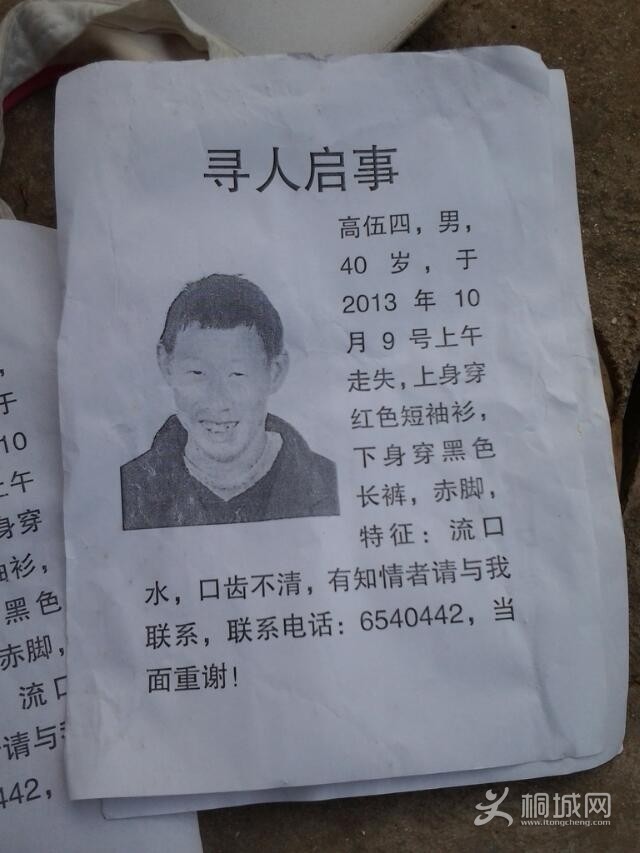 寻人启事
高伍四，男，
40 岁，于
2013 年 10
月 9 号上午
走失，上身穿
红色短袖衫，
下身穿黑色
长裤，赤脚，
特征：流口
水，口齿不清，有知情者请与我
联系，联系电话：6540442，当
面重谢！
于
10
上午
身穿
袖衫，
黑色
赤脚，
流口
请与我
442，
桐城网
www.itongcheng.com